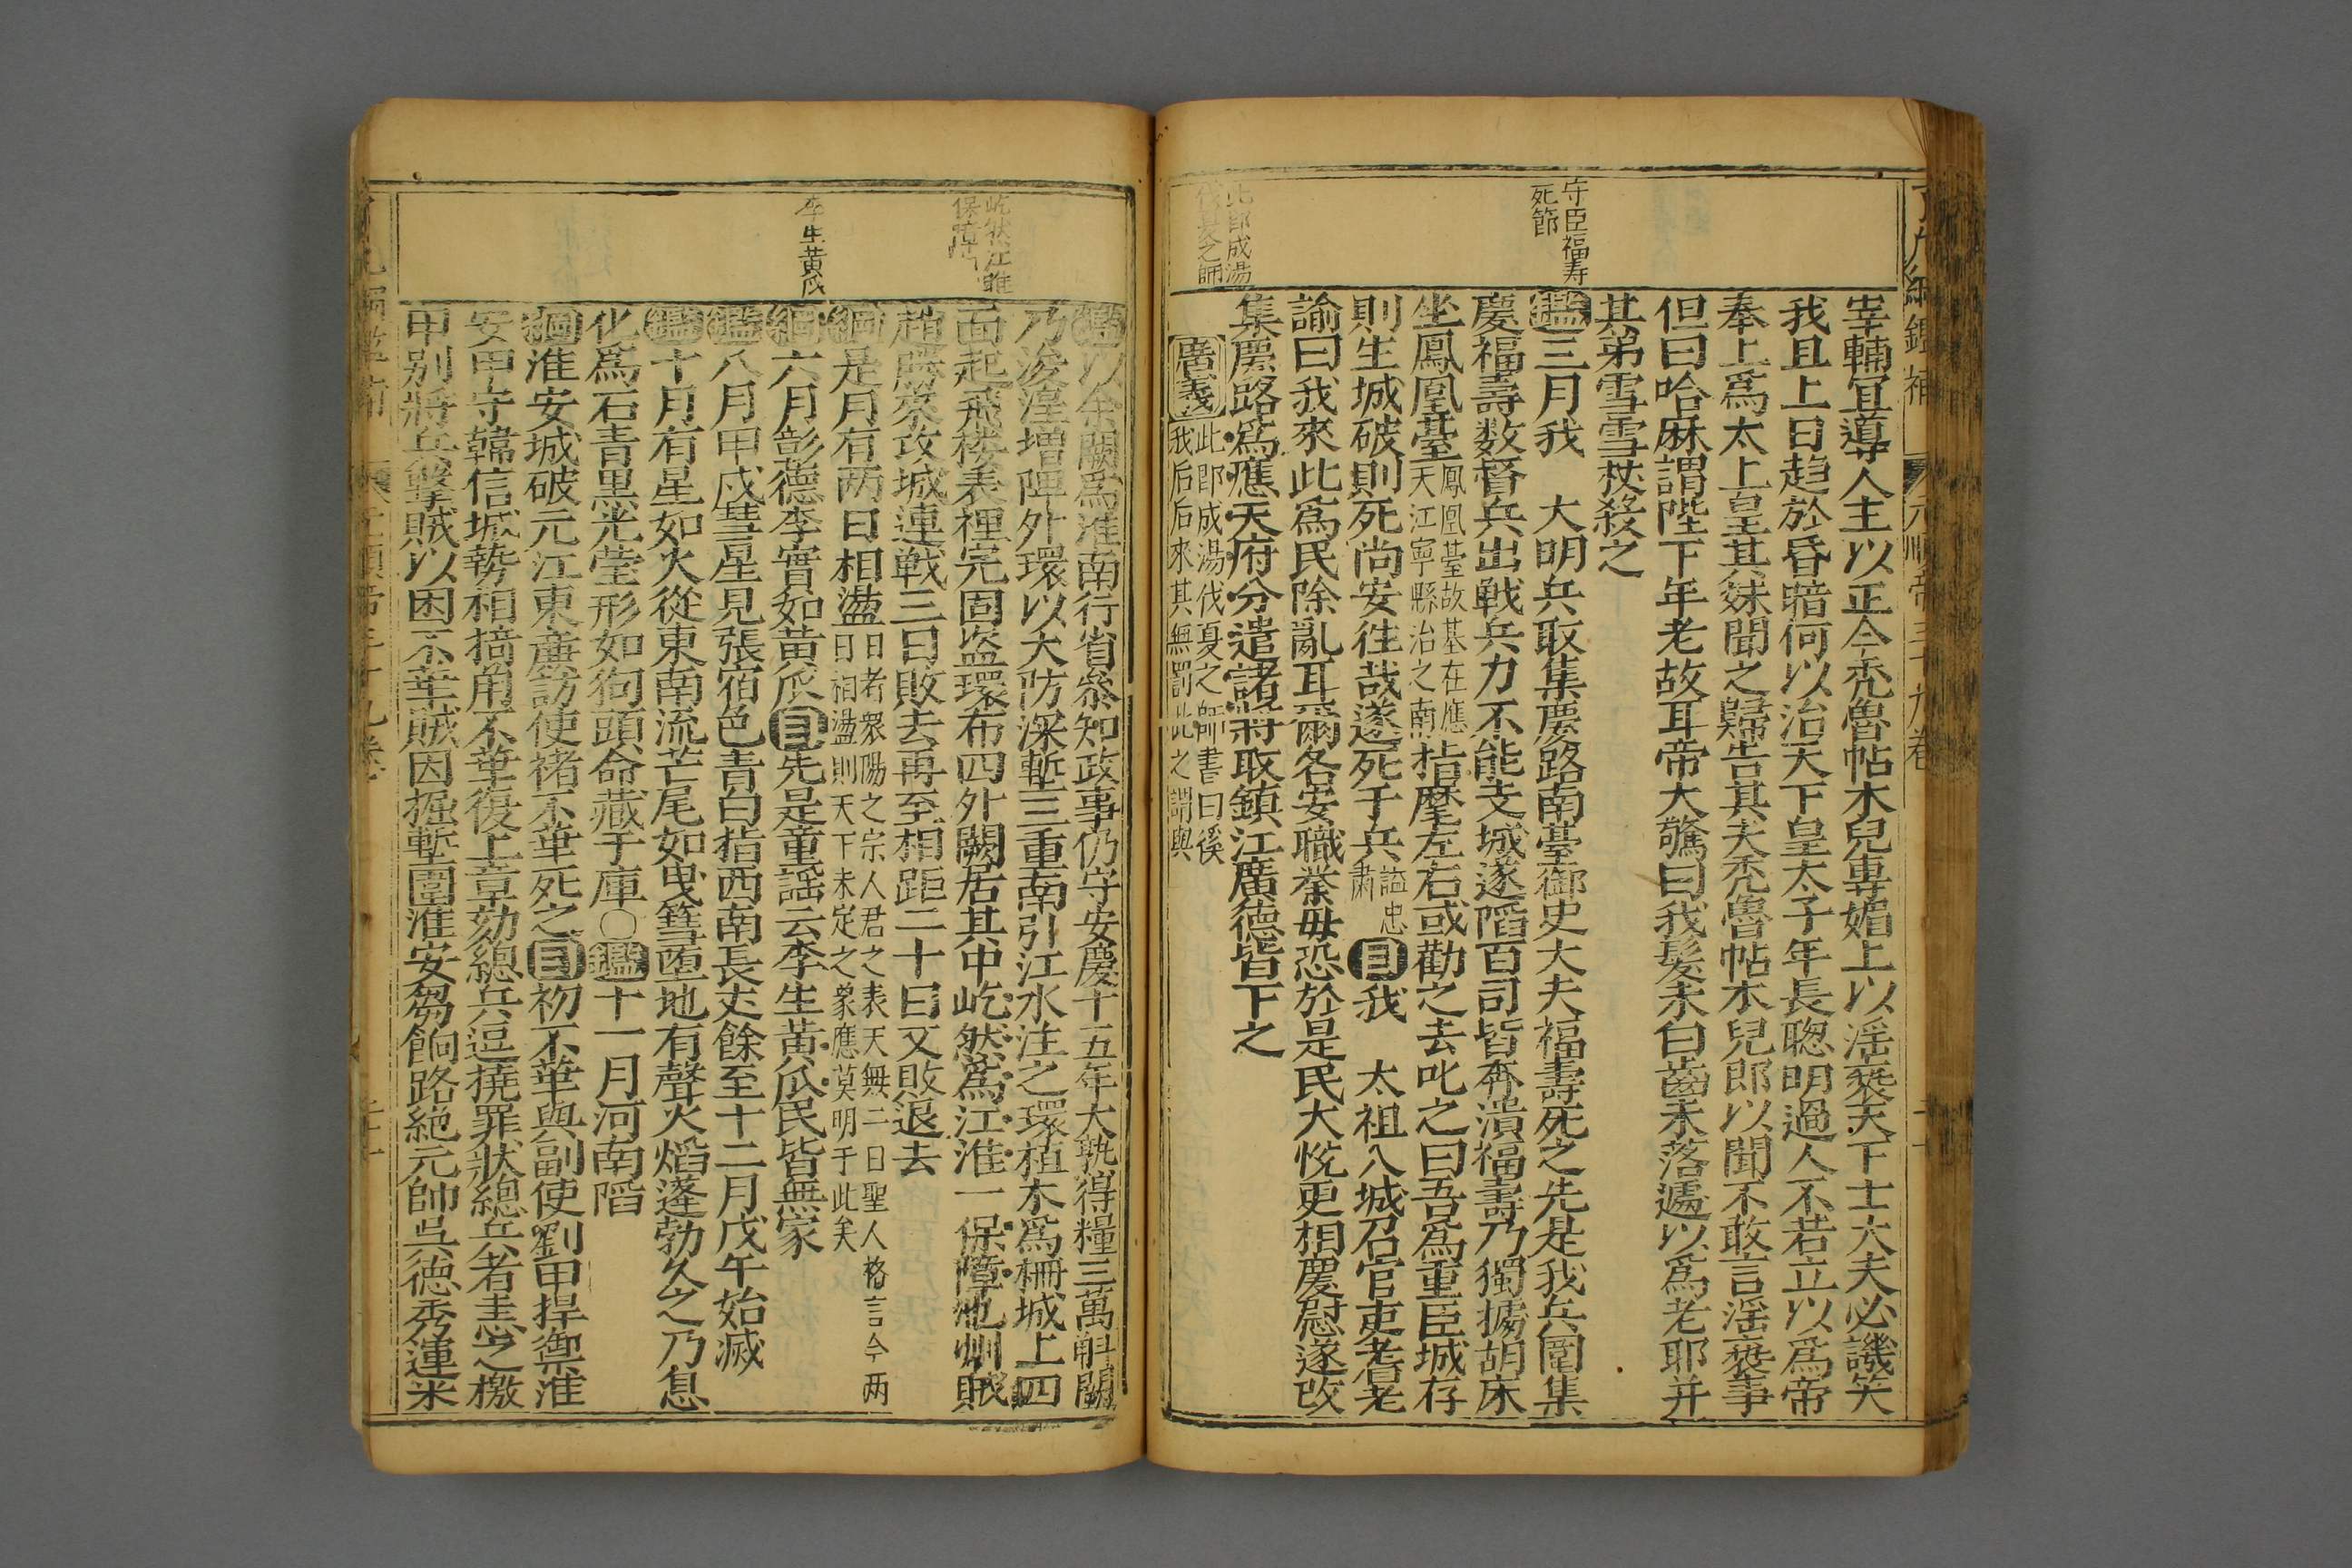 守臣福寿
死節
此郎成湯
伐夏之師
宰輔宜導人主以正今禿魯帖木兒專媚上以滛䙝天下士大夫必譏笑
我且上日趋於昏暗何以治天下皇太子年長聦明過人不若立以為帝
奉上為太上皇其妹聞之歸告其夫禿魯帖木兒郎以聞不敢言滛䙝事
但曰哈麻謂陛下年老故耳帝大驚曰我髮未白齒未落遽以為老耶并
其弟雪雪杖殺之
鑑三月我 大明兵取集慶路南臺御史大夫福壽死之先是我兵圍集
慶福壽数督兵出戰兵力不能支城遂陷百司皆奔潰福壽乃獨據胡床
坐鳳凰臺鳳凰臺故基在應天江寧縣治之南指麾左右或勸之去叱之曰吾為重臣城存
則生城破則死尚安往哉遂死于兵諡忠肅目我 太祖入城召官吏耆老
諭曰我來此為民除亂耳爾各安職業毋恐於是民大悦更相慶慰遂改
集慶路為應天府分遣諸將取鎮江廣德皆下之
廣義此即成湯伐夏之師書曰徯我后后來其無罰此之謂與
屹然江淮
保障
李生黃瓜
鑑以余闕為淮南行省參知政事仍守安慶十五年大䟎得糧三萬斛闕
乃浚湟增陴外環以大防深塹三重南引江水注之環植木為柵城上四
面起飛楼表裡完固盗環布四外闕居其中屹然為江淮一保障池州賊
趙勝衆攻城連戦三日敗去再至相距二十日又敗退去
綱是月有两日相盪日者衆陽之宗人君之表天無二日聖人格言今两日相盪則天下未定之象應莫明于此矣
綱六月彭德李實如黃瓜目先是童謡云李生黃瓜民皆無家
鑑八月甲戌彗星見張宿色青白指西南長丈餘至十二月戊午始滅
鑑十月有星如火從東南流芒尾如曳篲堕地有聲火焰蓬勃久之乃息
化為石青黑光瑩形如狗頭命藏于庫〇鑑十一月河南陷
綱淮安城破元江東㢘訪使褚不華死之目初不華與副使劉甲捍禦淮
安甲守韓信城勢相掎角不華復上章劾總兵逗撓罪狀總兵者恚之檄
甲别將兵擊賊以困不華賊因掘塹圍淮安芻餉路絶元帥吳德秀運米